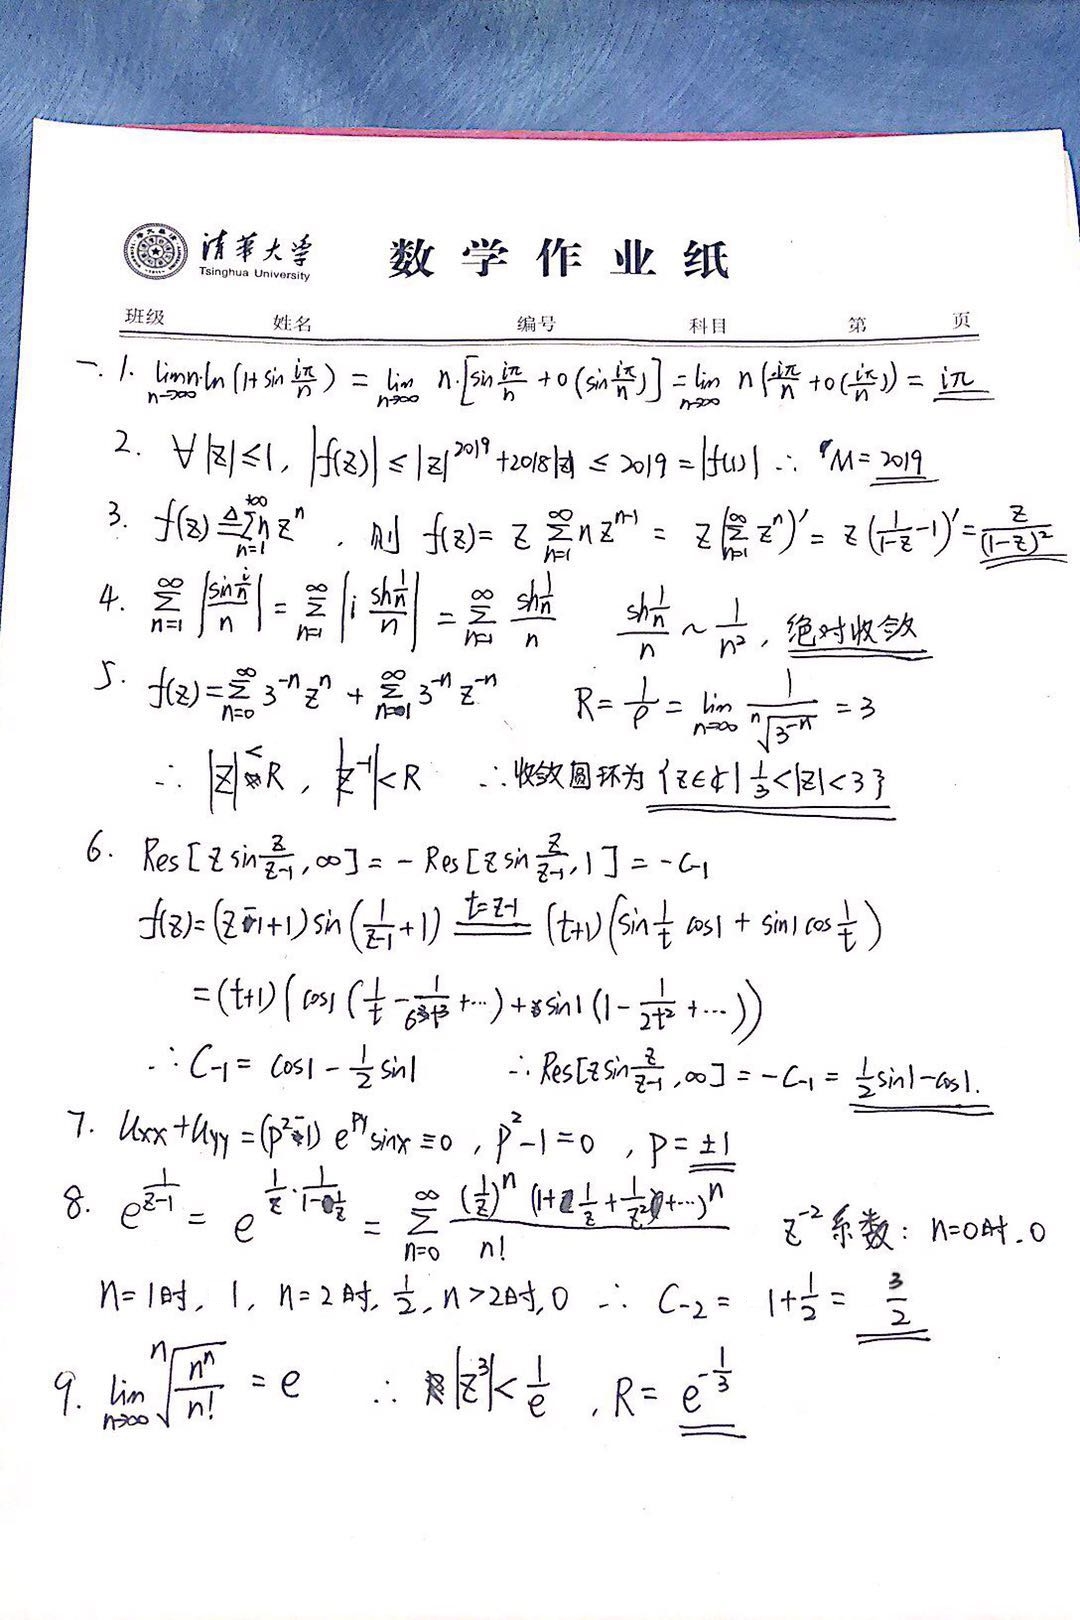 清华大学 数学作业纸
Tsinghua University
班级 姓名 编号 科目 第 页
一. 1. lim_{n→∞} n·ln(1+sin iπ/n) = lim_{n→∞} n·[sin iπ/n + o(sin iπ/n)] = lim_{n→∞} n(iπ/n + o(iπ/n)) = iπ
2. ∀|z|≤1, |f(z)| ≤ |z|^2019 + 2018|z| ≤ 2019 = |f(1)| ∴ M = 2019
3. f(z) ≜ Σ_{n=1}^{+∞} n z^n, 则 f(z) = z Σ_{n=1}^{∞} n z^{n-1} = z(Σ_{n=1}^{∞} z^n)' = z(1/(1-z) - 1)' = z/(1-z)^2
4. Σ_{n=1}^{∞} |sin(i/n)/n| = Σ_{n=1}^{∞} |i sh(1/n)/n| = Σ_{n=1}^{∞} sh(1/n)/n sh(1/n)/n ~ 1/n^2, 绝对收敛
5. f(z) = Σ_{n=0}^{∞} 3^{-n} z^n + Σ_{n=1}^{∞} 3^{-n} z^{-n} R = 1/ρ = lim_{n→∞} 1/ⁿ√(3^{-n}) = 3
∴ |z| < R, |z^{-1}| < R ∴ 收敛圆环为 {z∈ℂ | 1/3 < |z| < 3}
6. Res[z sin z/(z-1), ∞] = -Res[z sin z/(z-1), 1] = -C_{-1}
f(z) = (z-1+1) sin(1/(z-1) + 1) \overset{t=z-1}{=} (t+1)(sin 1/t cos1 + sin1 cos 1/t)
= (t+1)(cos1 (1/t - 1/(6t^3) + ···) + sin1 (1 - 1/(2t^2) + ···))
∴ C_{-1} = cos1 - 1/2 sin1 ∴ Res[z sin z/(z-1), ∞] = -C_{-1} = 1/2 sin1 - cos1.
7. U_xx + U_yy = (p^2-1) e^{py} sinx ≡ 0, p^2-1=0, p = ±1
8. e^{1/(z-1)} = e^{1/z · 1/(1-1/z)} = Σ_{n=0}^{∞} (1/z)^n (1+1/z+1/z^2+···)^n / n! z^{-2} 系数: n=0时, 0
n=1时, 1, n=2时, 1/2, n>2时, 0 ∴ C_{-2} = 1+1/2 = 3/2
9. lim_{n→∞} ⁿ√(n^n/n!) = e ∴ |z^3| < 1/e, R = e^{-1/3}